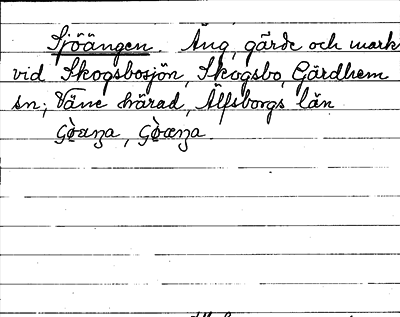 Sjöängen. Äng, gärde och mark
vid Skogsbosjön, Skogsbo, Gärdhem
sn; Väne härad, Älfsborgs län